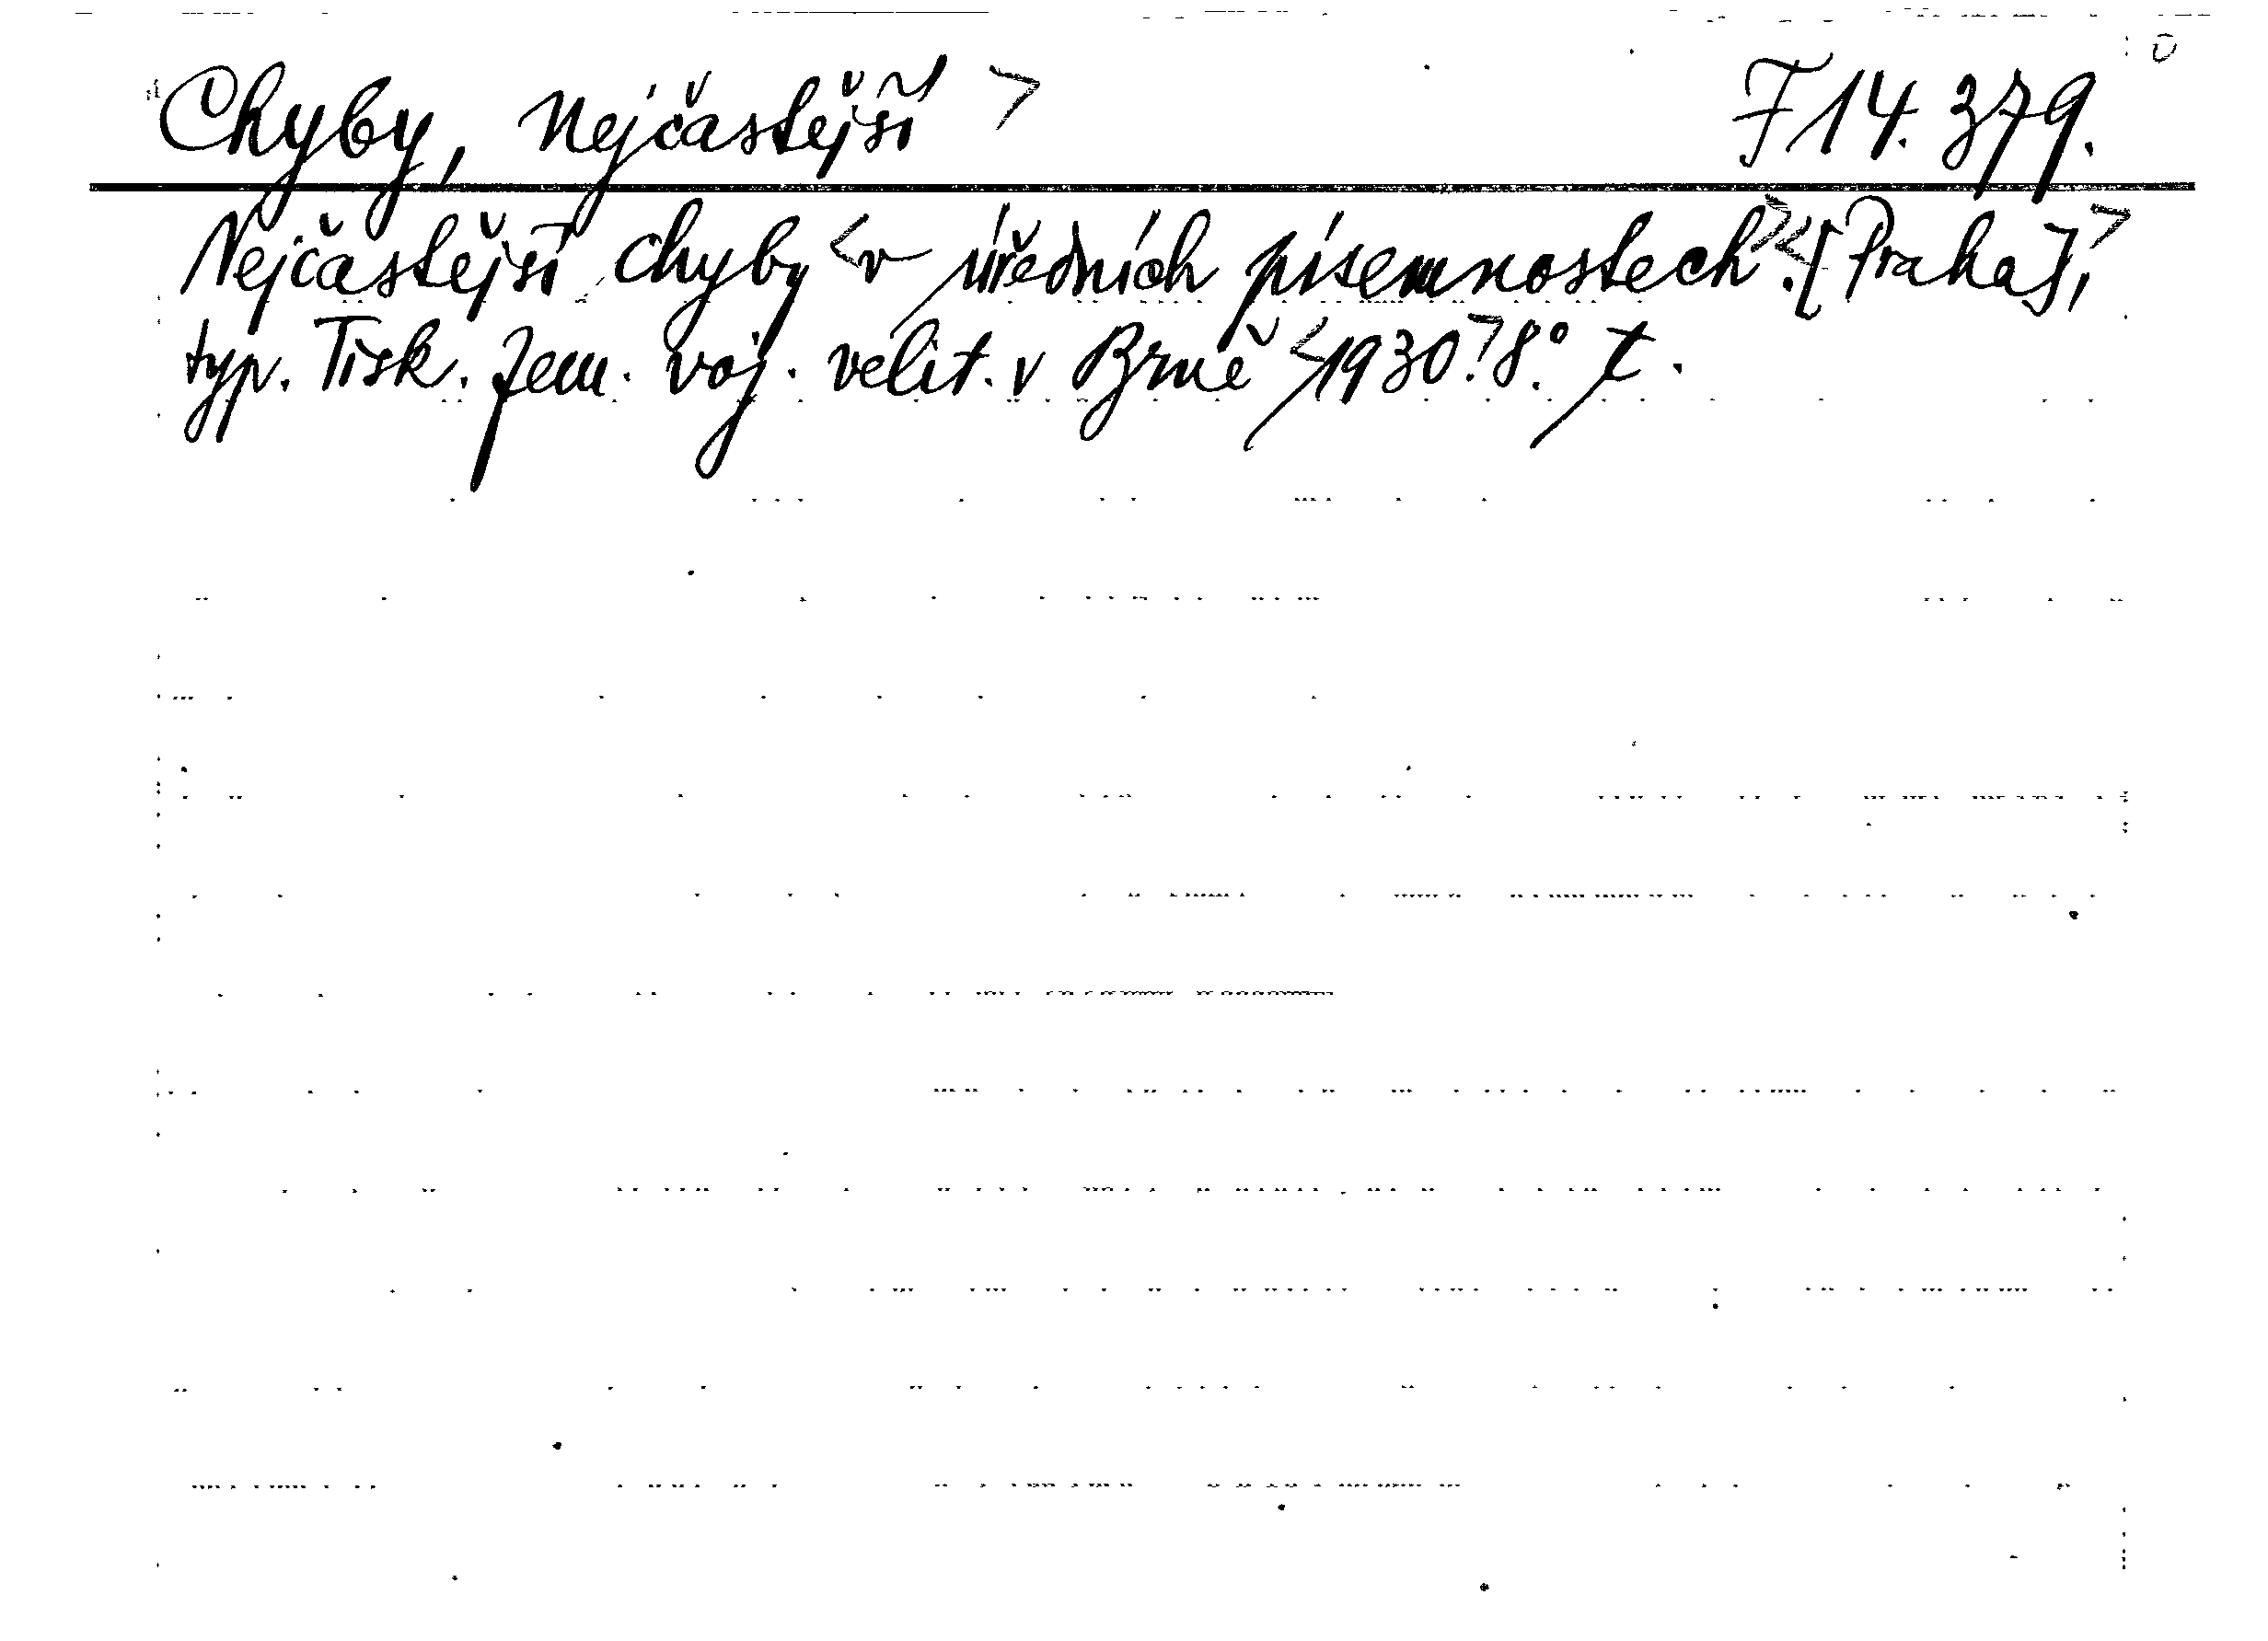 Chyby, Nejčastější > F 14.379.
Nejčastější chyby <v úředních písemnostech>.<[Praha],>
typ. Tisk. Zem. voj. velit. v Brně <1930.> 8°. t.